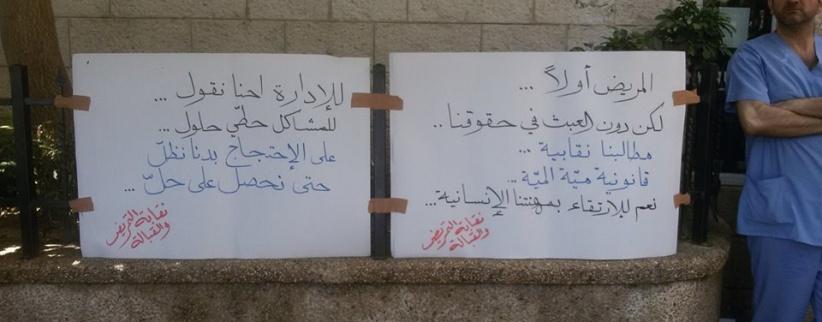 المريض أولاً ...
لكن دون العبث في حقوقنا ..
مطالبنا نقابية ...
قانونية ميّة الميّة ...
نعم للارتقاء بمهنتنا الإنسانية ...
نقابة التمريض
والقبالة
للإدارة احنا نقول ...
للمشاكل حطّي حلول ...
على الإحتجاج بدنا نظلّ
حتى نحصل على حلّ ...
نقابة التمريض
والقبالة